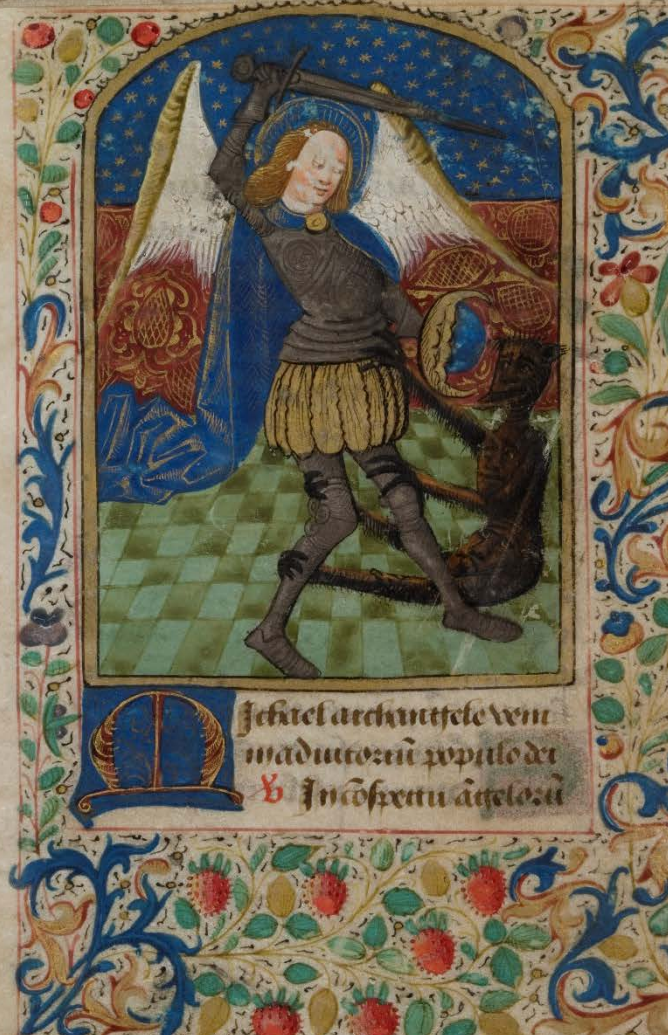 Michael archangele veni
in adiutoriū populo dei
V In cōspectu āgelorū